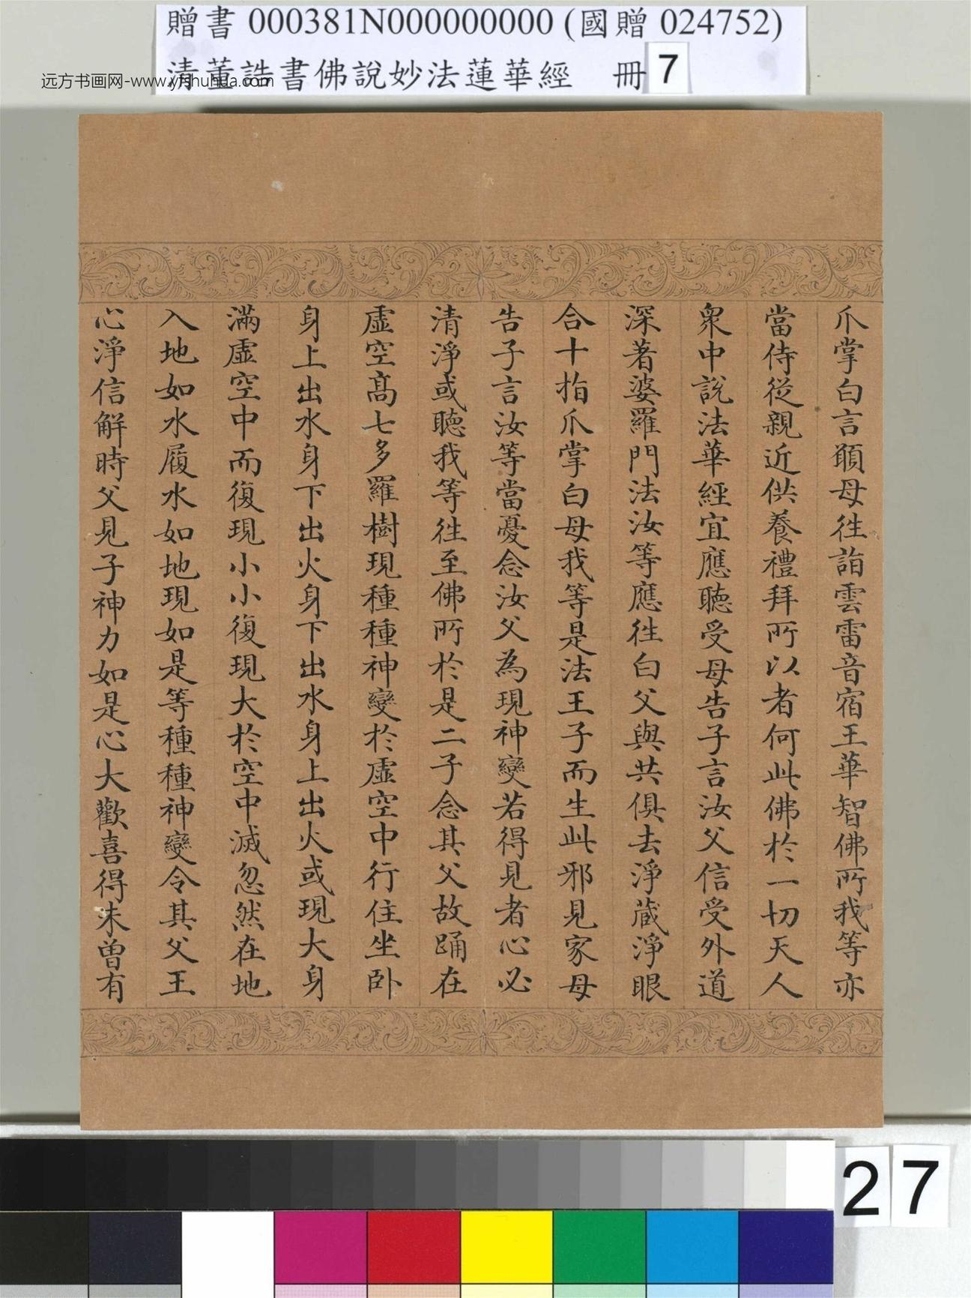 贈書 000381N000000000 (國贈 024752)
清董誥書佛說妙法蓮華經 冊 7
远方书画网-www.yfshuhua.com
爪掌白言願母往詣雲雷音宿王華智佛所我等亦
當侍從親近供養禮拜所以者何此佛於一切天人
衆中說法華經宜應聽受母告子言汝父信受外道
深著婆羅門法汝等應往白父與共俱去淨藏淨眼
合十指爪掌白母我等是法王子而生此邪見家母
告子言汝等當憂念汝父為現神變若得見者心必
清淨或聽我等往至佛所於是二子念其父故踊在
虛空高七多羅樹現種種神變於虛空中行住坐卧
身上出水身下出火身下出水身上出火或現大身
滿虛空中而復現小小復現大於空中滅忽然在地
入地如水履水如地現如是等種種神變令其父王
心淨信解時父見子神力如是心大歡喜得未曾有
27